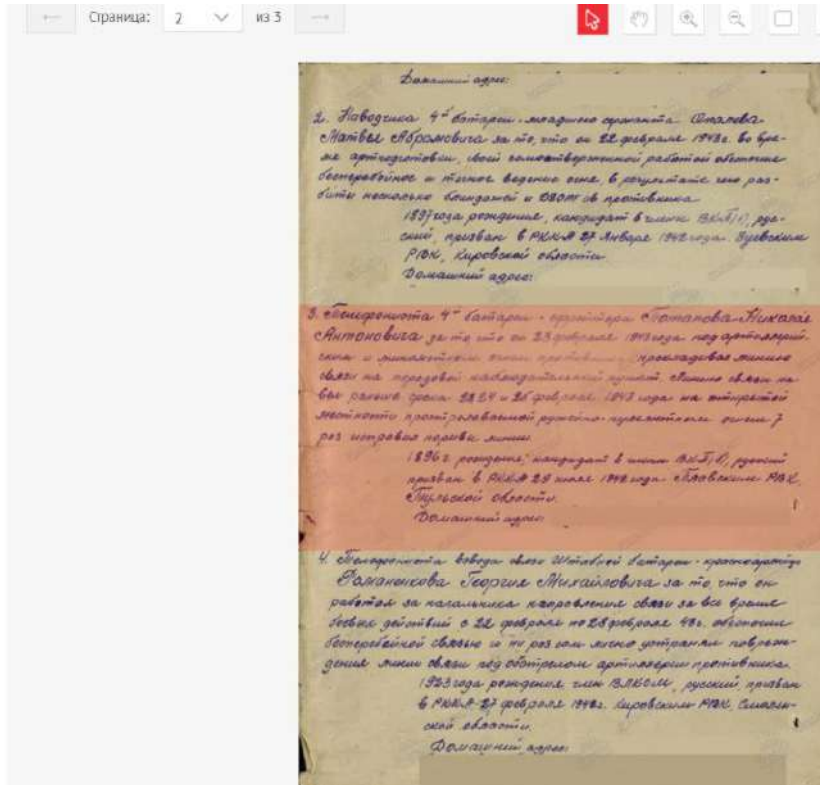 Страница: 2 из 3
Домашний адрес:
2. Наводчика 4й батареи - младшего сержанта
Матвея Абрамовича за то, что он 22 февраля 1943г. во вре-
мя артподготовки, своей самоотверженной работой обеспечил
бесперебойное и точное ведение огня, в результате чего раз-
биты несколько блиндажей и ДЗОТов противника
1897 года рождения, кандидат в члены ВКП/б/, рус-
ский, призван в РККА 27 января 1942 года
РВК, Кировской области
Домашний адрес:
3. Телефониста 4й батареи - ефрейтора Потапова Николая
Антоновича за то что он 23 февраля 1943 года под артиллерий-
ским и минометным огнем противника прокладывал линию
связи на передовой наблюдательный пункт. Линию связи на
1943 года на открытой
местности простреливаемой ружейно-пулеметным огнем 7
раз исправил порывы линии
1896 г рождения, кандидат в члены ВКП/б/, русский
призван в РККА 29 1942 года Плавским РВК,
Тульской области.
Домашний адрес:
4. Телефониста взвода связи Штабной батареи - красноармейца
Романенкова Георгия Михайловича за то, что он
работая за начальника направления связи за все время
боевых действий с 22 февраля по 28 февраля 43г. обеспечил
бесперебойной связью и раз сам лично устранял повреж-
дения линии связи под обстрелом артиллерии противника.
1923 года рождения член ВЛКСМ, русский, призван
в РККА 27 февраля 1942г. Кировским РВК, Смолен-
ской области.
Домашний адрес: